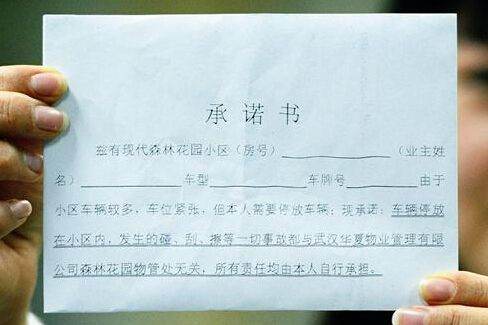 承诺书
兹有现代森林花园小区（房号）＿＿＿＿＿＿＿＿（业主姓
名）＿＿＿＿＿＿＿＿车型＿＿＿＿＿＿＿＿车牌号＿＿＿＿＿＿＿＿由于
小区车辆较多，车位紧张，但本人需要停放车辆；现承诺：车辆停放
在小区内，发生的碰、刮、擦等一切事故都与武汉华夏物业管理有限
公司森林花园物管处无关，所有责任均由本人自行承担。